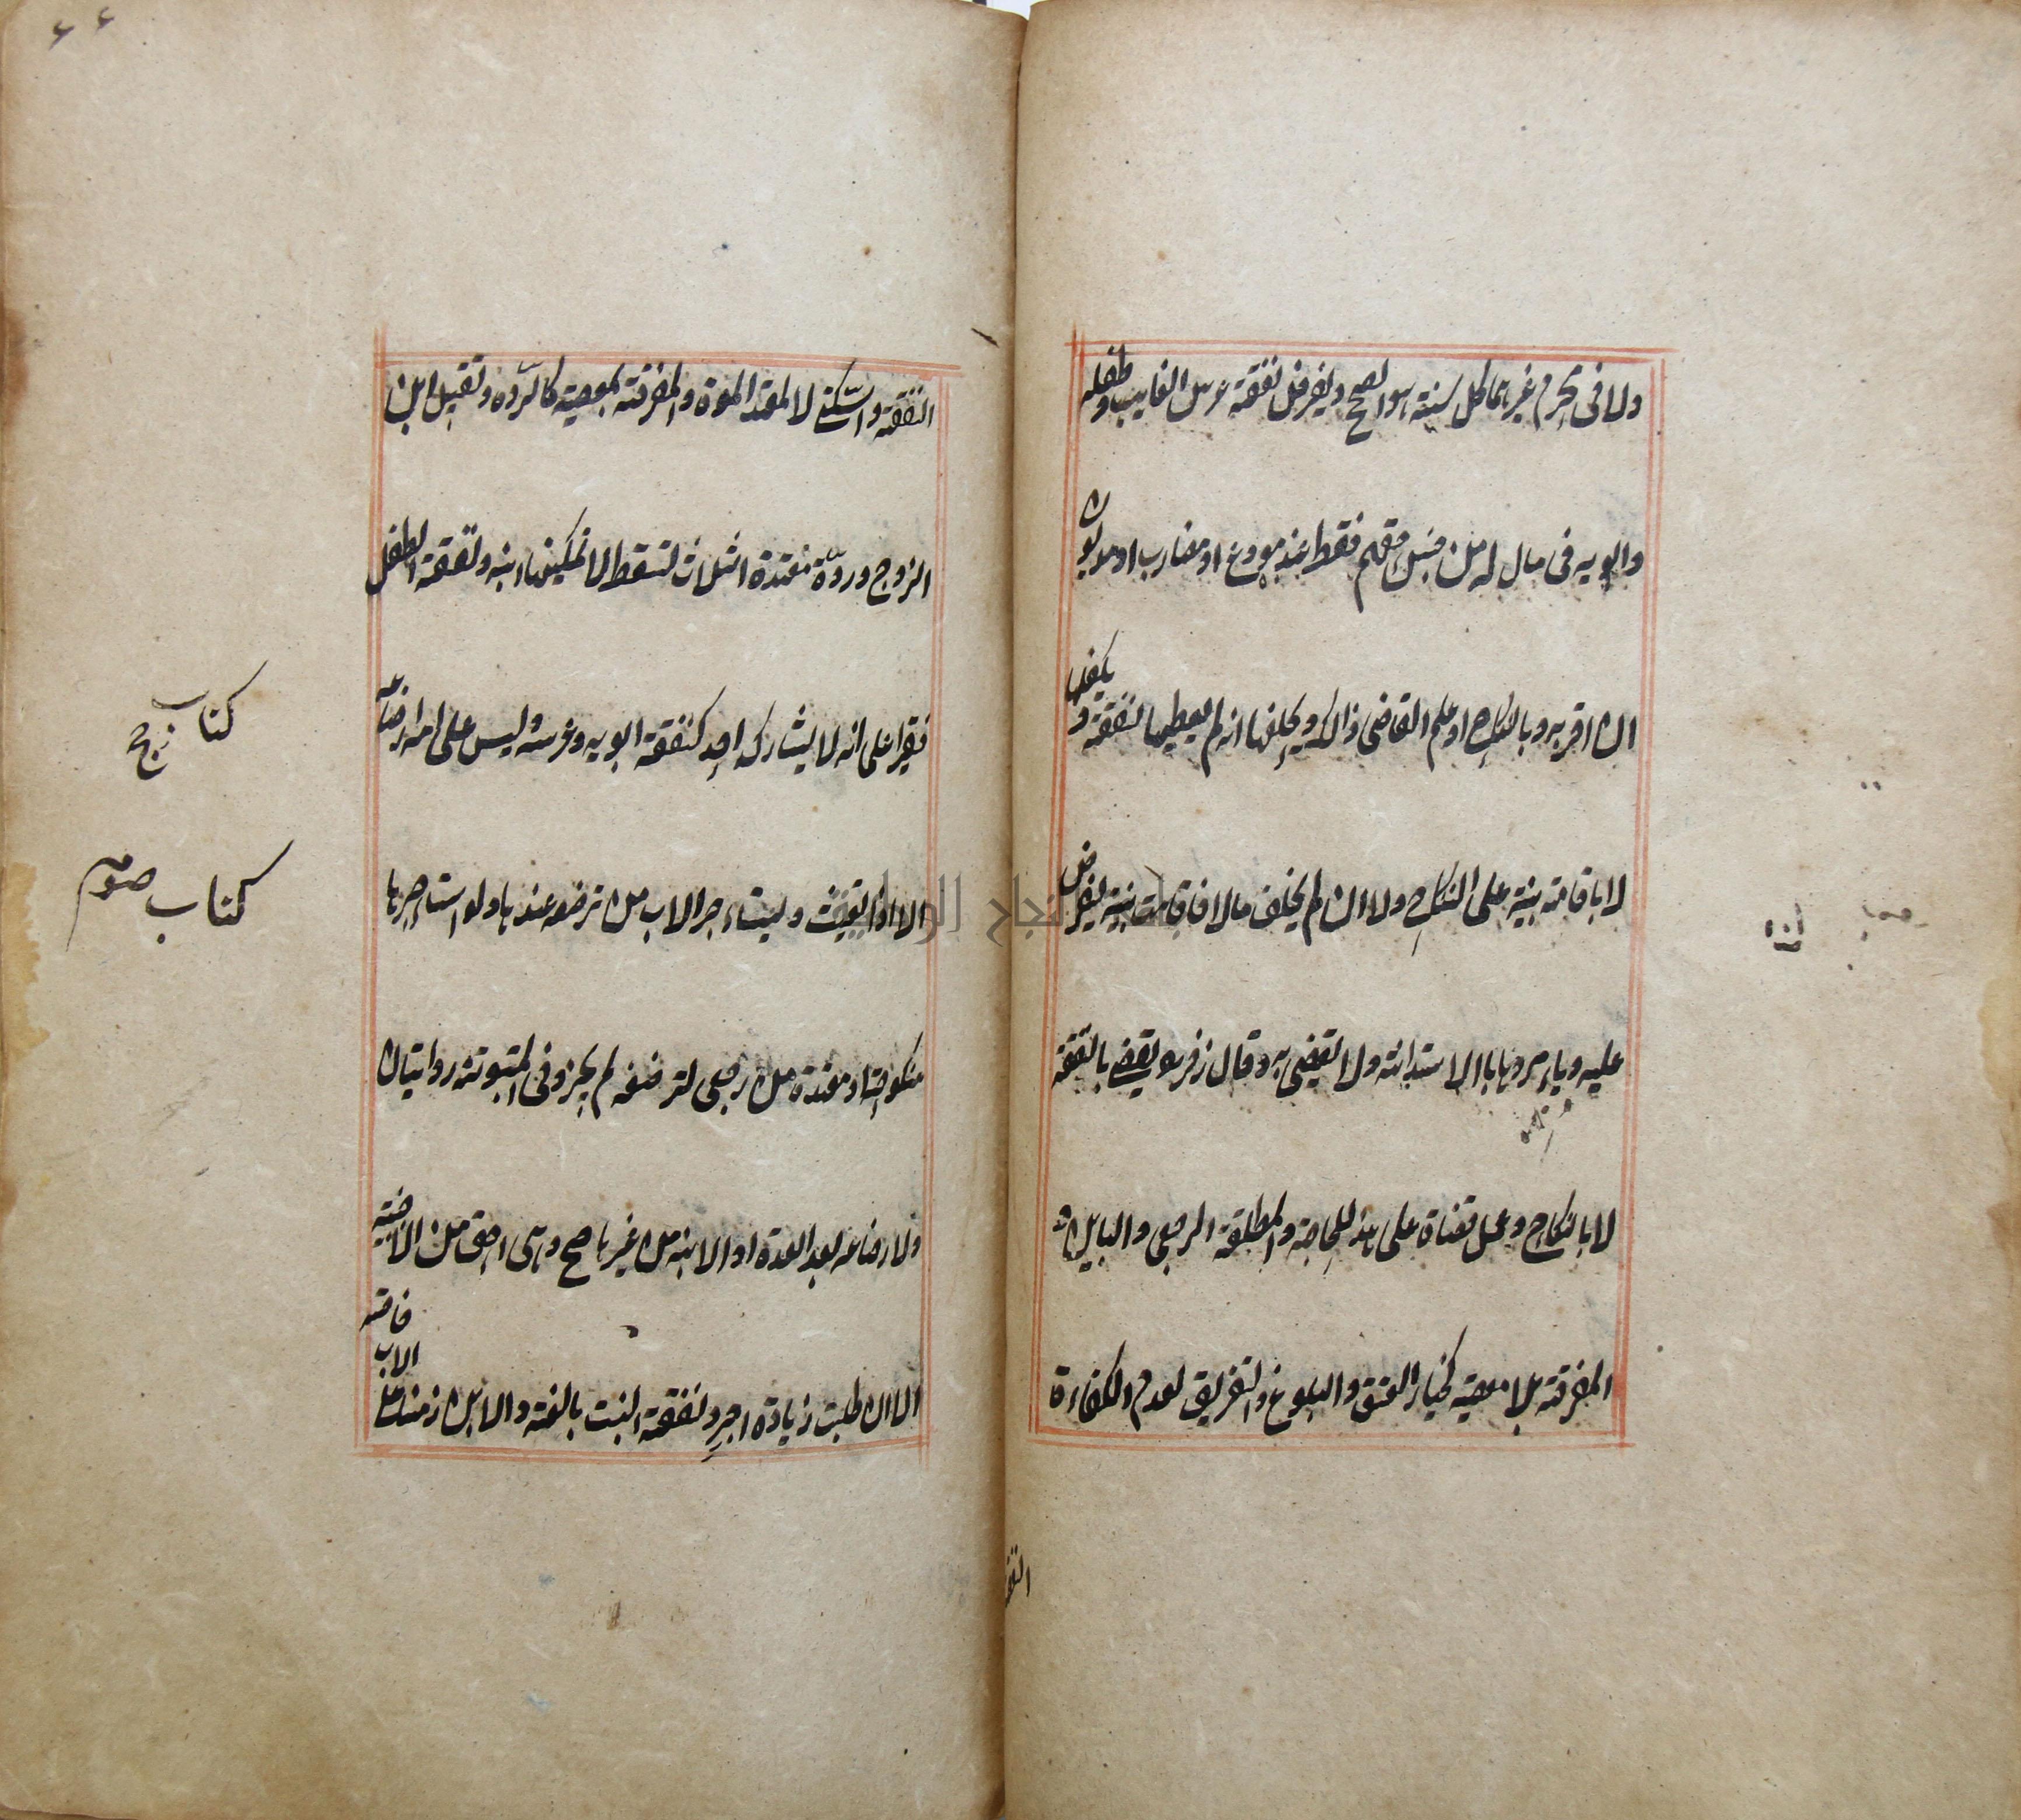 ولا فى محرم غيرهما كل سنة هو الصح ويفرض نفقة عرس الغايب وطفله
وابويه فى مال له من جنس حقهم فقط عند مودع او مضارب او مديون
ان اقر به وبالنكاح او علم القاضى ذالك ويحلفها انه لم يعطيها النفقة و يكفلها
لا باقامة بينة على النكاح ولا ان لم يخلف مالا فاقامت بينة ليفرض
عليه ويامرها باالاستدانة ولا يقضى به وقال زفر يقضى بالنفقة
لا بالنكاح وعمل قضاة على هذا للحاجة والمطلقة الرجعى والباين و
المفرقة بلا معصية كخيار العتق والبلوغ والتفريق لعدم الكفاءة
النفقة والسكنى لا لمعتد الموة والمفرقة بمعصية كالردة وتقبيل ابن
الزوج وردة معتدة الثلاث تسقط لا تمكينها ابنه ونفقة الطفل
فقيرا على ابيه لا يشاركه احد كنفقة ابويه وعرسه وليس على امه ارضاعه
الا اذا تعينت ويستاءجر الاب من ترضعه عندها ولو استاءجرها
منكوحة او معتدة من رجعى لترضعه لم يجز وفى المبتوتة روايتان
ولارضاعه بعد العدة او الابنه من غيرها صح وهى احق من الاجنبية
الا ان طلبت زيادة اجر ونفقة البنت بالغة والابن زمنا على الاب خاصة
كتاب حج
كتاب صوم
٦٦